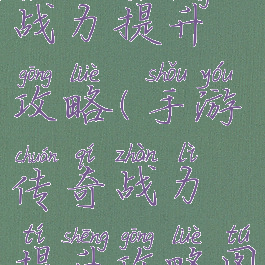 战力提升
gōng lüè shǒu yóu
攻略(手游
chuán qí zhàn lì
传奇战力
tí shēng gōng lüè tú
提升攻略图